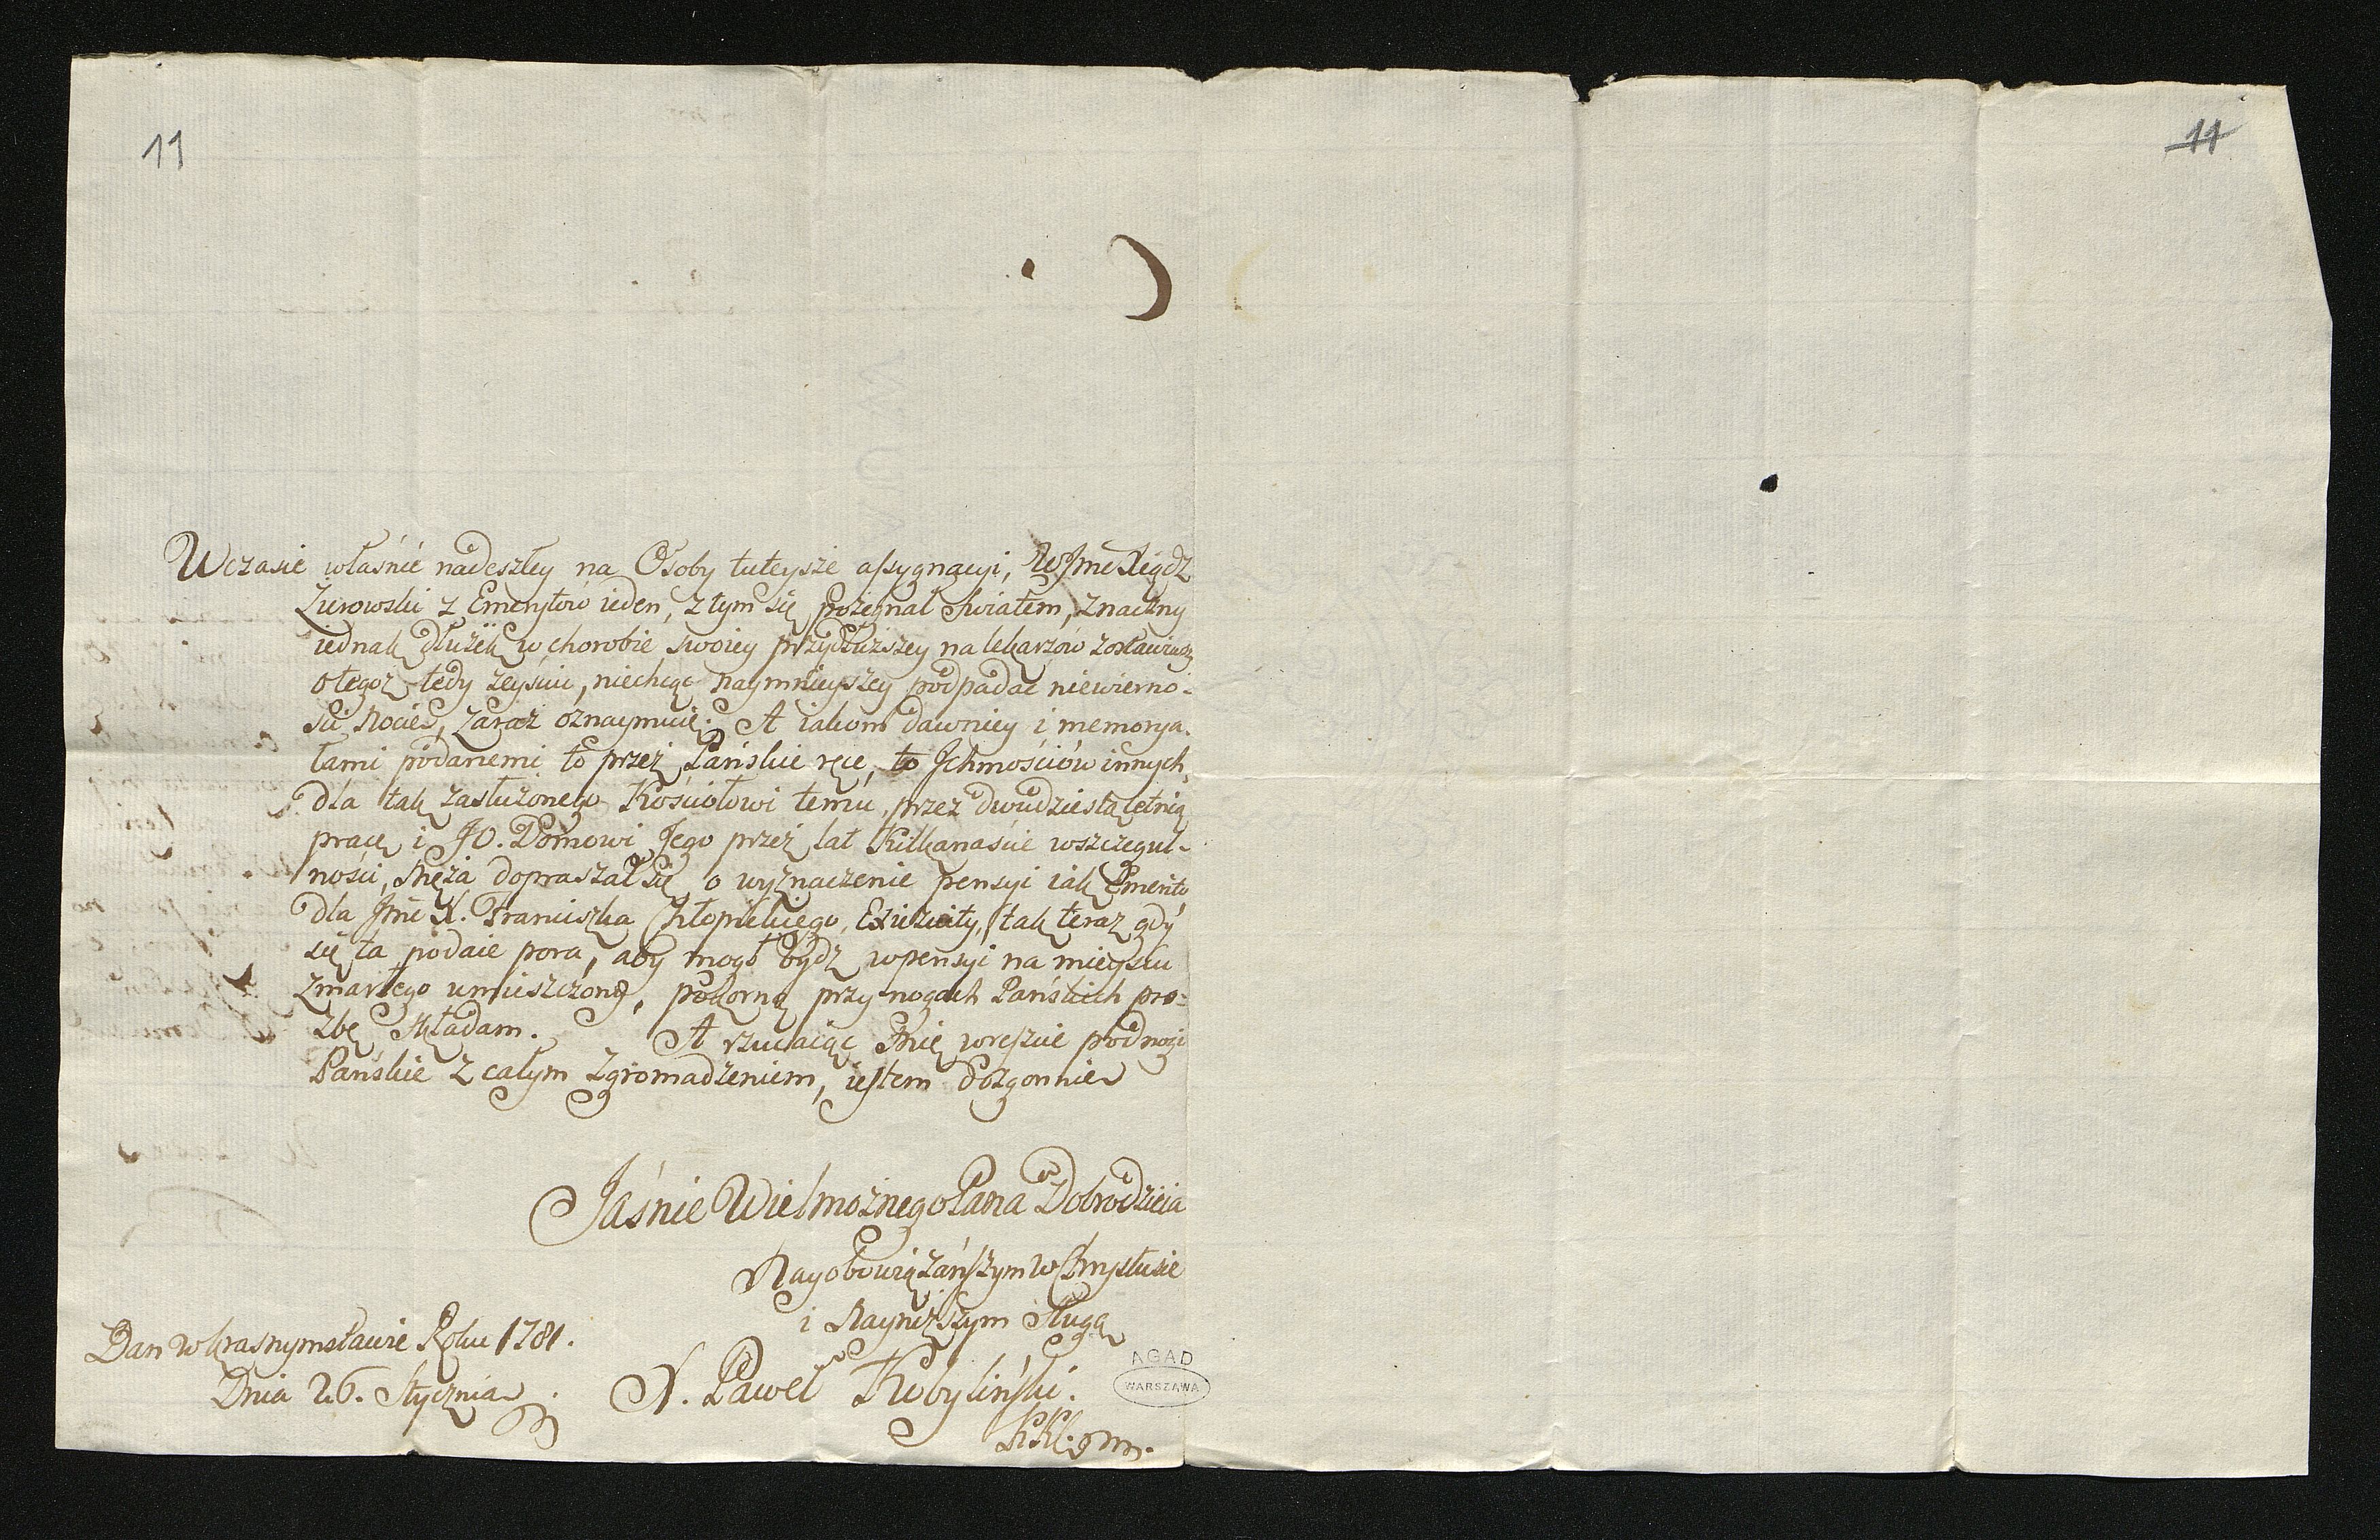 11
11
Wczasie właśnie nadeszłey na Osoby tuteysze assygnacyi, WJmc Xiądz
Żurowski z Emerytów ieden, z tym się pożegnał światem, znaczny
iednak dłużek w chorobie swoiey przydłuższey na lekarzów zostawiwszy
otegoż tedy zeyściu, niechcąc naymnieyszey podpadać niewierno-
ści nocie, zaraz oznaymuię. A iakom dawniey i memorya-
łami podanemi to przez Pańskie ręce, to Ichmościów innych,
dla tak zasłużonego Kościołowi temu, przez dwudziestaletnią
pracę i JO. Domowi Jego przez lat kilkanaście wszczegul-
ności, Męża dopraszał się o wyznaczenie pensyi iak Emeritо
dla Jmc X. Franciszka Kłopickiego, Exiezuity, tak teraz gdy
się ta podaie pora, aby mogł bydź wpensyi na mieyscu
zmarłego umieszczony, pokorną przy nogach Pańskich pro-
źbę składam. A rzucaiąc Mię wreszcie pod nogi
Pańskie z całym zgromadzeniem, iestem dozgonnie
Jaśnie Wielmożnego Pana Dobrodzieia
Nayobowiązańszym w Umyśle
i Nayniższym Sługą
Dan w Krasnymstawie Roku 1781.
Dnia 26. Stycznia
X. Paweł Kobyliński.
AGAD
WARSZAWA